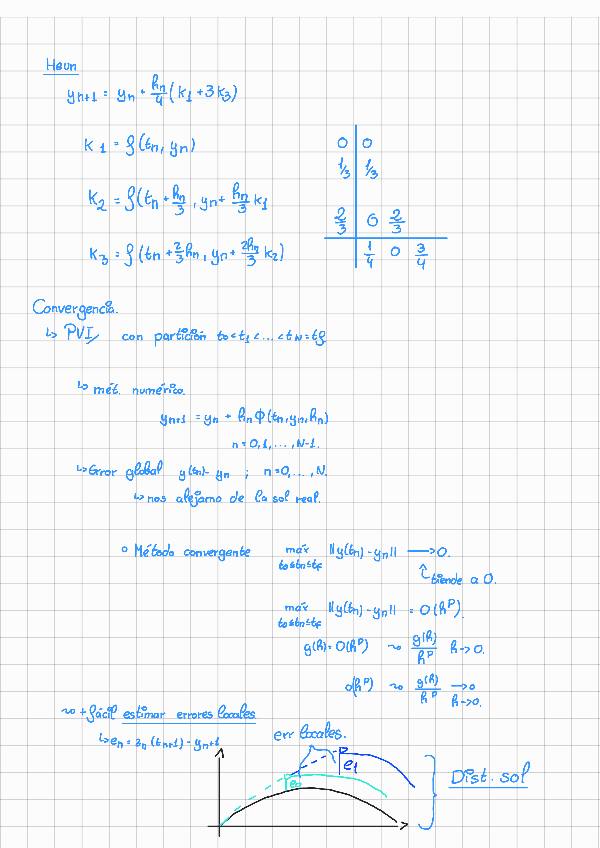 Heun
yn+1 = yn + hn/4 (k1 + 3k3)
k1 = f(tn, yn)
k2 = f(tn + hn/3, yn + hn/3 k1
k3 = f(tn + 2/3 hn, yn + 2hn/3 k2)
0 | 0
1/3 | 1/3
2/3 | 0 2/3
1/4 0 3/4
Convergencia.
↳ PVI con partición t0 < t1 < ... < tN = tf
↳ mét. numérico.
yn+1 = yn + hn Φ(tn, yn, hn)
n = 0, 1, ..., N-1.
↳ Error global y(tn) - yn ; n = 0, ..., N.
↳ nos alejamo de la sol real.
o Método convergente máx t0≤tn≤tf ||y(tn) - yn|| → 0.
↑ tiende a 0.
máx t0≤tn≤tf ||y(tn) - yn|| = O(h^p).
g(h) = O(h^p) ~ g(h)/h^p h → 0.
o(h^p) ~ g(h)/h^p → 0 h → 0.
~ + fácil estimar errores locales
↳ en = zn(tn+1) - yn+1
err locales.
e0
e1
Dist. sol